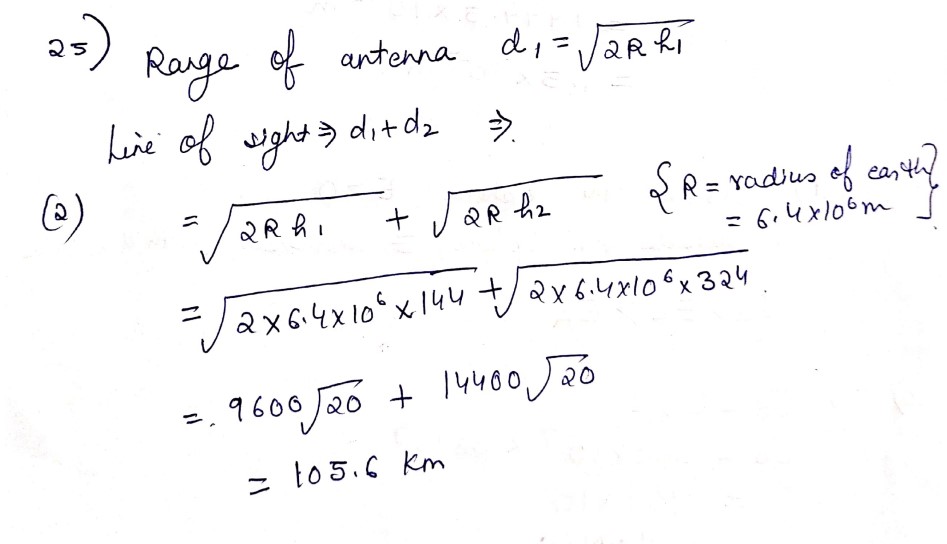 25) Range of antenna d₁ = √2Rh₁
Line of sight ⇒ d₁+d₂ ⇒.
(2) = √2Rh₁ + √2Rh₂ {R = radius of earth
= 6.4×10⁶m}
= √2×6.4×10⁶×144 + √2×6.4×10⁶×324.
=. 9600√20 + 14400√20
= 105.6 Km